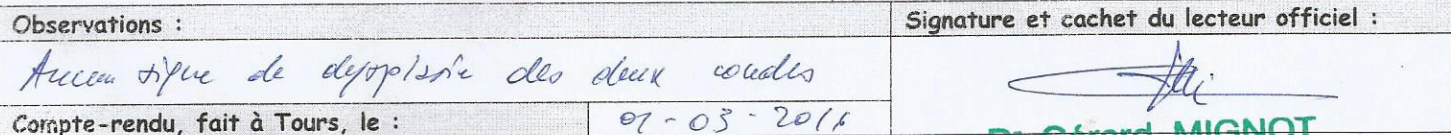 Observations :
Aucun signe de dysplasie des deux coudes
Compte-rendu, fait à Tours, le :
Signature et cachet du lecteur officiel :
Dr Gérard MIGNOT